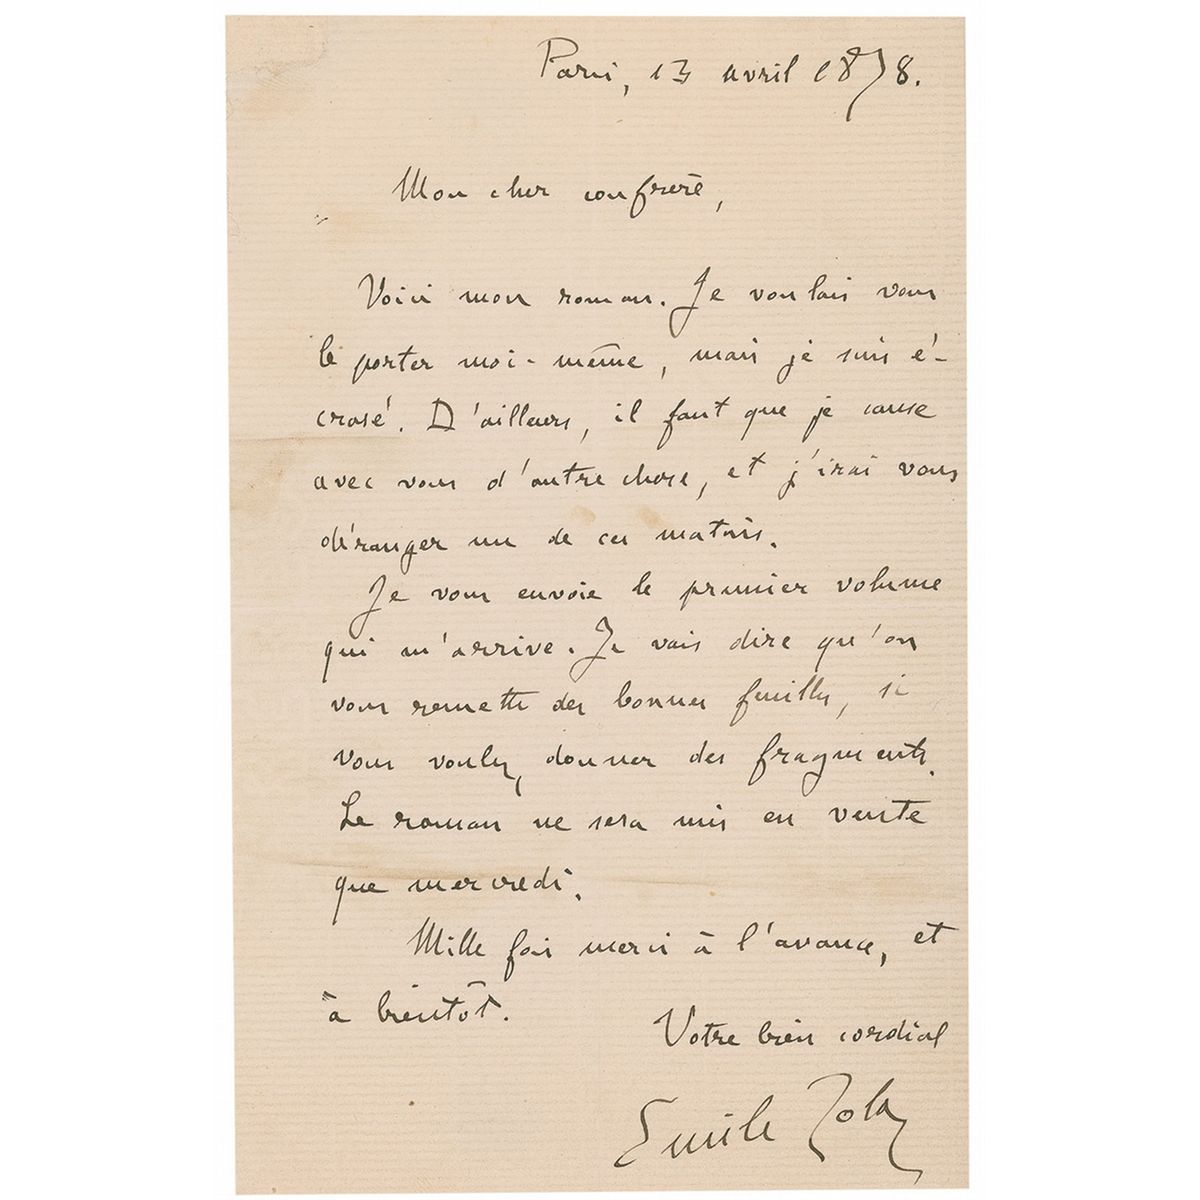 Paris, 13 avril 1878.
Mon cher confrère,
Voici mon roman. Je voulais vous
le porter moi-même, mais je suis é-
crasé. D'ailleurs, il faut que je cause
avec vous d'autre chose, et j'irai vous
déranger un de ces matins.
Je vous envoie le premier volume
qui m'arrive. Je vais dire qu'on
vous remette des bonnes feuilles, si
vous voulez donner des fragments.
Le roman ne sera mis en vente
que mercredi.
Mille fois merci à l'avance, et
à bientôt.
Votre bien cordial
Emile Zola